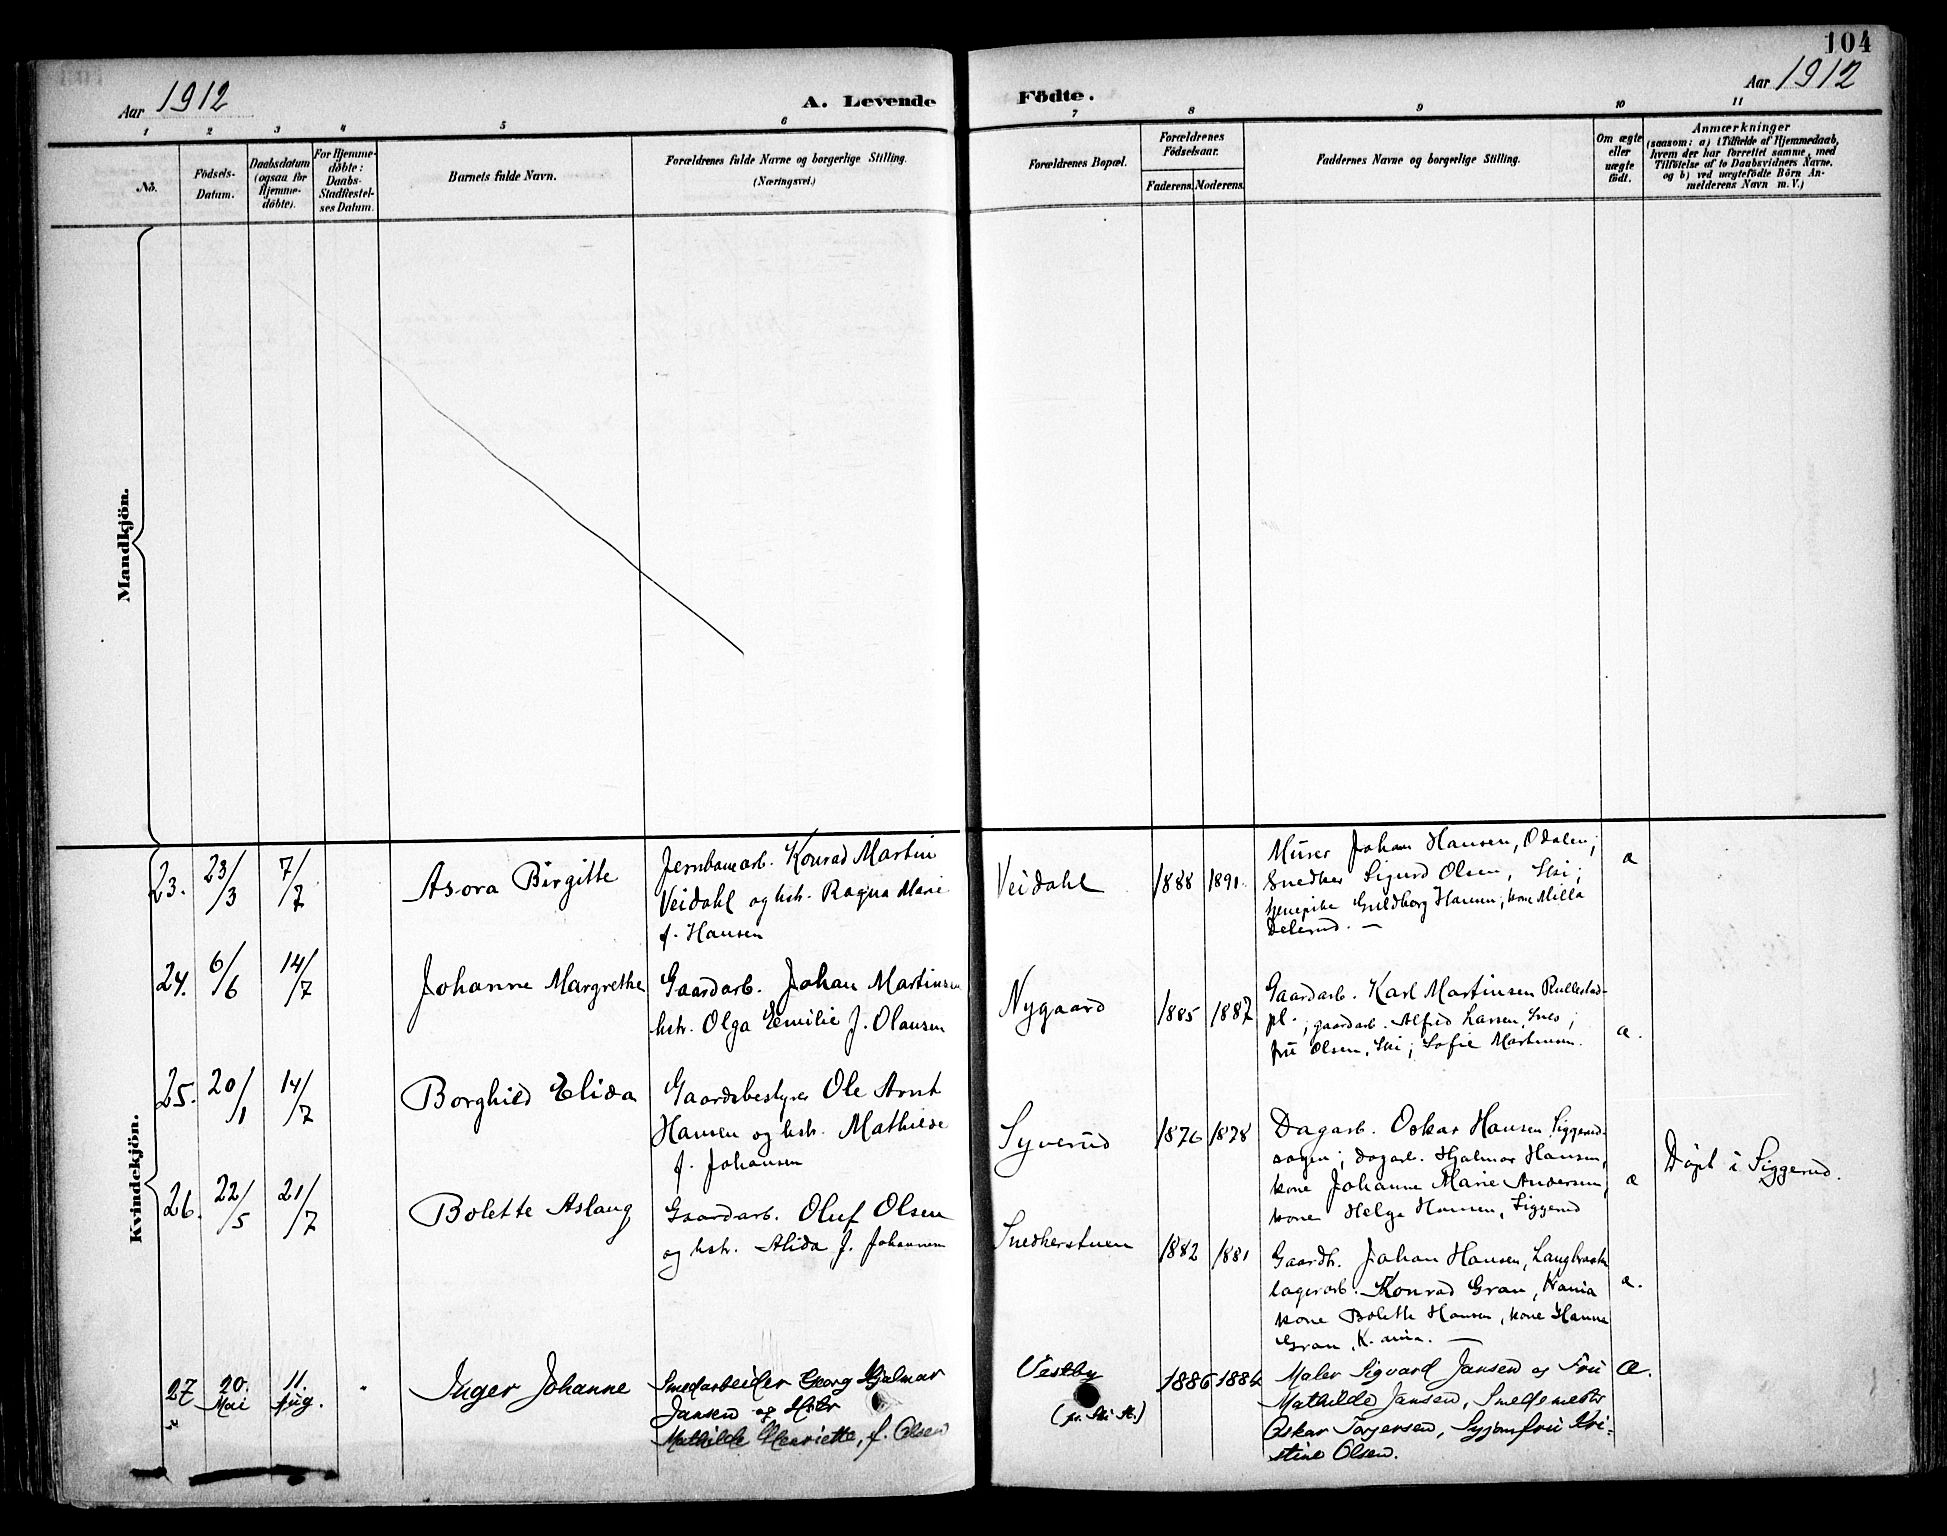 104
Aar 1912
A. Levende Födte.
Aar 1912
1 2 3 4 5 6 7 8 9 10 11
No.
Födsels-
Datum.
Daabsdatum
(ogsaa for
Hjemme-
döbte).
For Hjemme-
döbte:
Daabs-
Stadfæstel-
ses Datum.
Barnets fulde Navn.
Forældrenes fulde Navne og borgerlige Stilling.
(Næringsvei.)
Forældrenes Bopæl.
Forældrenes
Födselsaar.
Faderens. Moderens.
Faddernes Navne og borgerlige Stilling.
Om ægte
eller
uægte
født.
Anmærkninger
(saasom: a) i Tilfælde af Hjemmedaab,
hvem der har forrettet samme, med
Tilföielse af to Daabsvidners Navne,
og b) ved uægtefödte Börn An-
melderens Navn m. V.)
Mandkjön.
Kvindekjön.
23. 23/3 7/7 Asora Birgitte
Jernbanearb. Konrad Martin
Veidahl og hstr. Ragna Marie
f. Hansen
Veidahl 1888 1891
Murer Johan Hansen, Odalen;
Snedker Sigurd Olsen, Ski;
tjenepike Guldborg Hansen, kone Milla
æ
24. 6/6 14/7 Johanne Margrethe
Gaardarb. Johan Martinsen
hstr. Olga Emilie f. Olausen
Nygaard 1885 1887
Gaardarb. Karl Martinsen Rullestad-
pl.; gaardarb. Alfred Larsen,
fru Olsen, Ski; Sofie Martinsen.
æ.
25. 20/1 14/7 Borghild Elida
Gaardsbestyrer Ole Arnt
Hansen og hstr. Mathilde
f. Johansen
Syverud 1876 1878
Dagarb. Oskar Hansen Siggerud-
sagen; dagarb. Hjalmar Hansen,
kone Johanne Marie Andersen,
kone Helga Hansen, Siggerud
æ
Döpt i Siggerud.
26. 22/5 21/7 Bolette Aslaug
Gaardarb. Oluf Olsen
og hstr. Alida f. Johannesen
Snedkerstuen 1882 1881
Gaardbr. Johan Hansen,
lagerarb. Konrad Gran, Kr.ania
kone Bolette Hansen, kone Hanna
Gran, K.ania.
æ.
27 20. Mai 11. Aug. Inger Johanne
Smedarbeider Georg Hjalmar
Jansen og Hstr
Mathilde Henriette, f. Olsen
Vestby
(pr. Ski St.)
1886 1884
Maler Sigvard Jansen og Fru
Mathilde Jansen, Smedemester
Oskar Torgersen, Syjomfru Kri-
stine Olsen.
Æ.